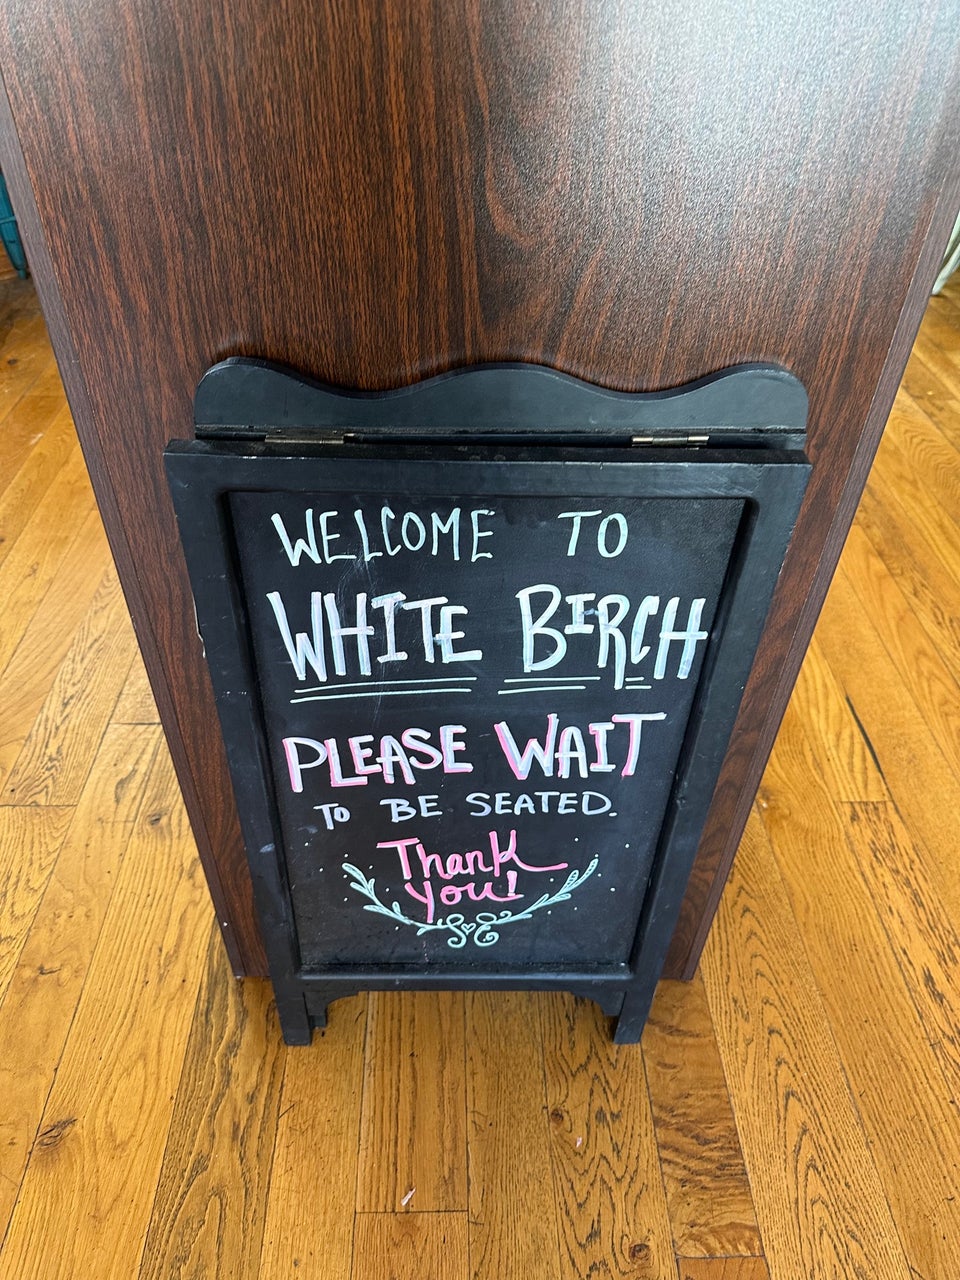 WELCOME TO
WHITE BIRCH
PLEASE WAIT
TO BE SEATED.
Thank
You!